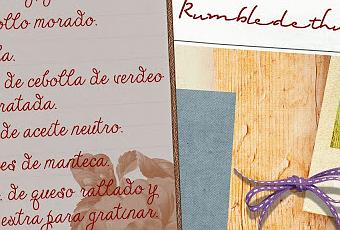 ollo morado.
la.
de cebolla de verdeo
ratada.
de aceite neutro.
es de manteca.
de queso rallado y
estra para gratinar.
Rumbledethu